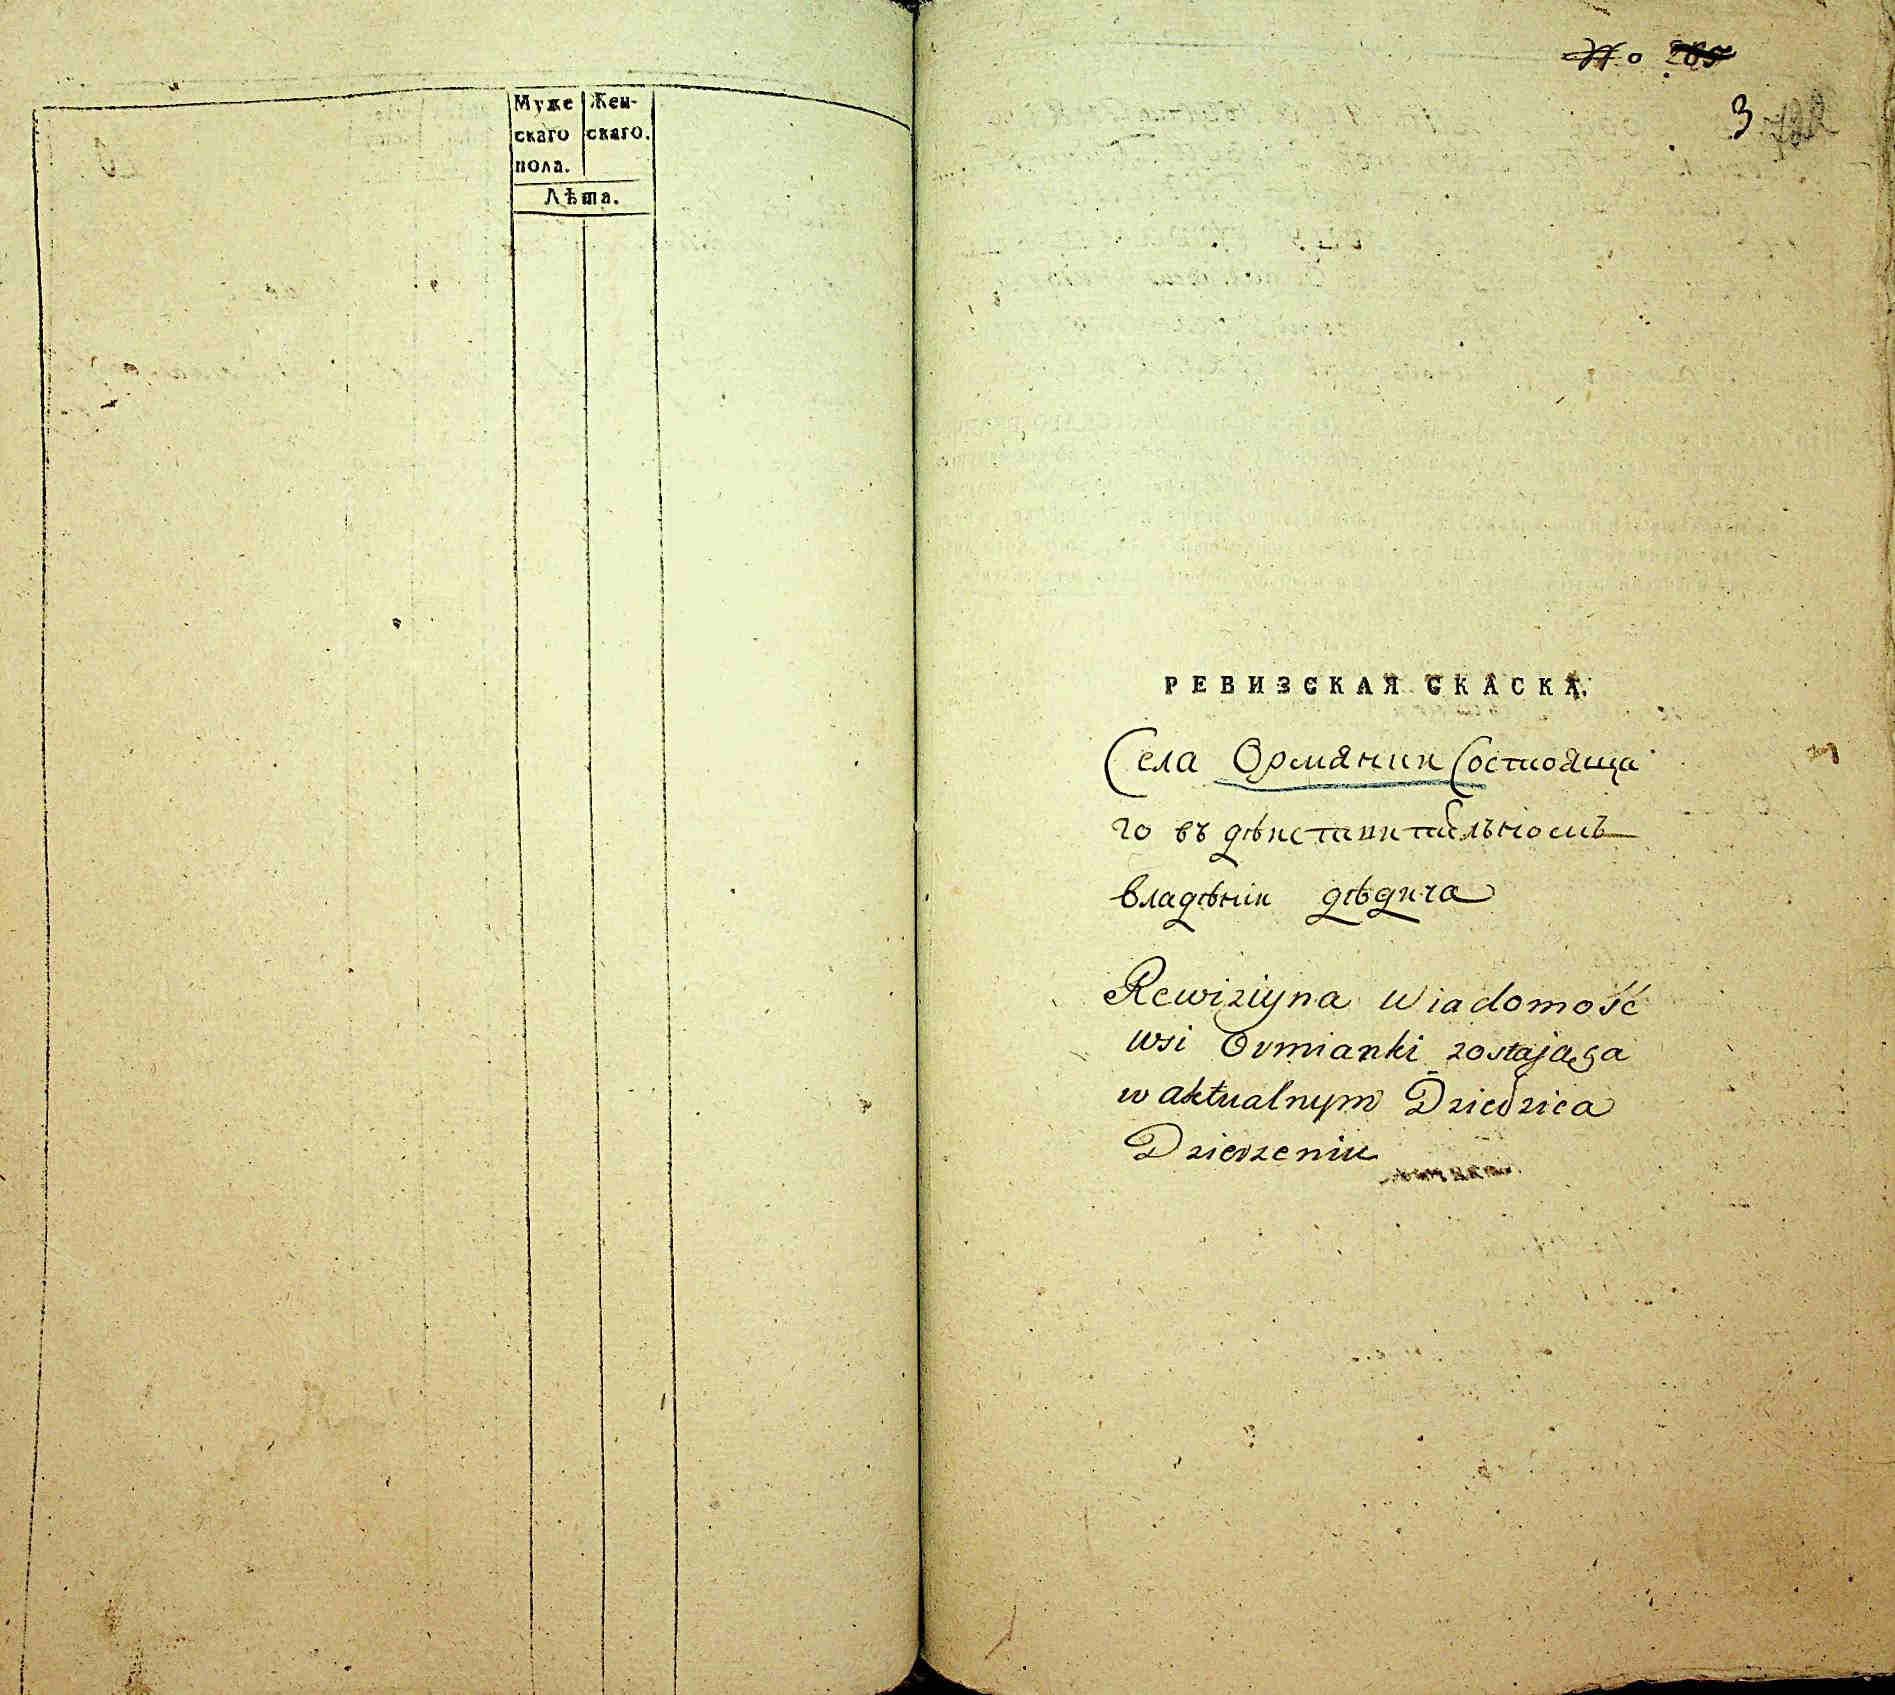 Муже Жен-
скаго скаго.
пола.
Лѣта.
No 285
3
РЕВИЗСКАЯ СКАСКА.
Села Ормянки Состояща
го въ дѣиставитальномъ
владѣнiи дѣдича
Rewiziyna Wiadomość
wsi Ormianki zostaiąca
w aktualnym Dziedzica
Dzierzeniu